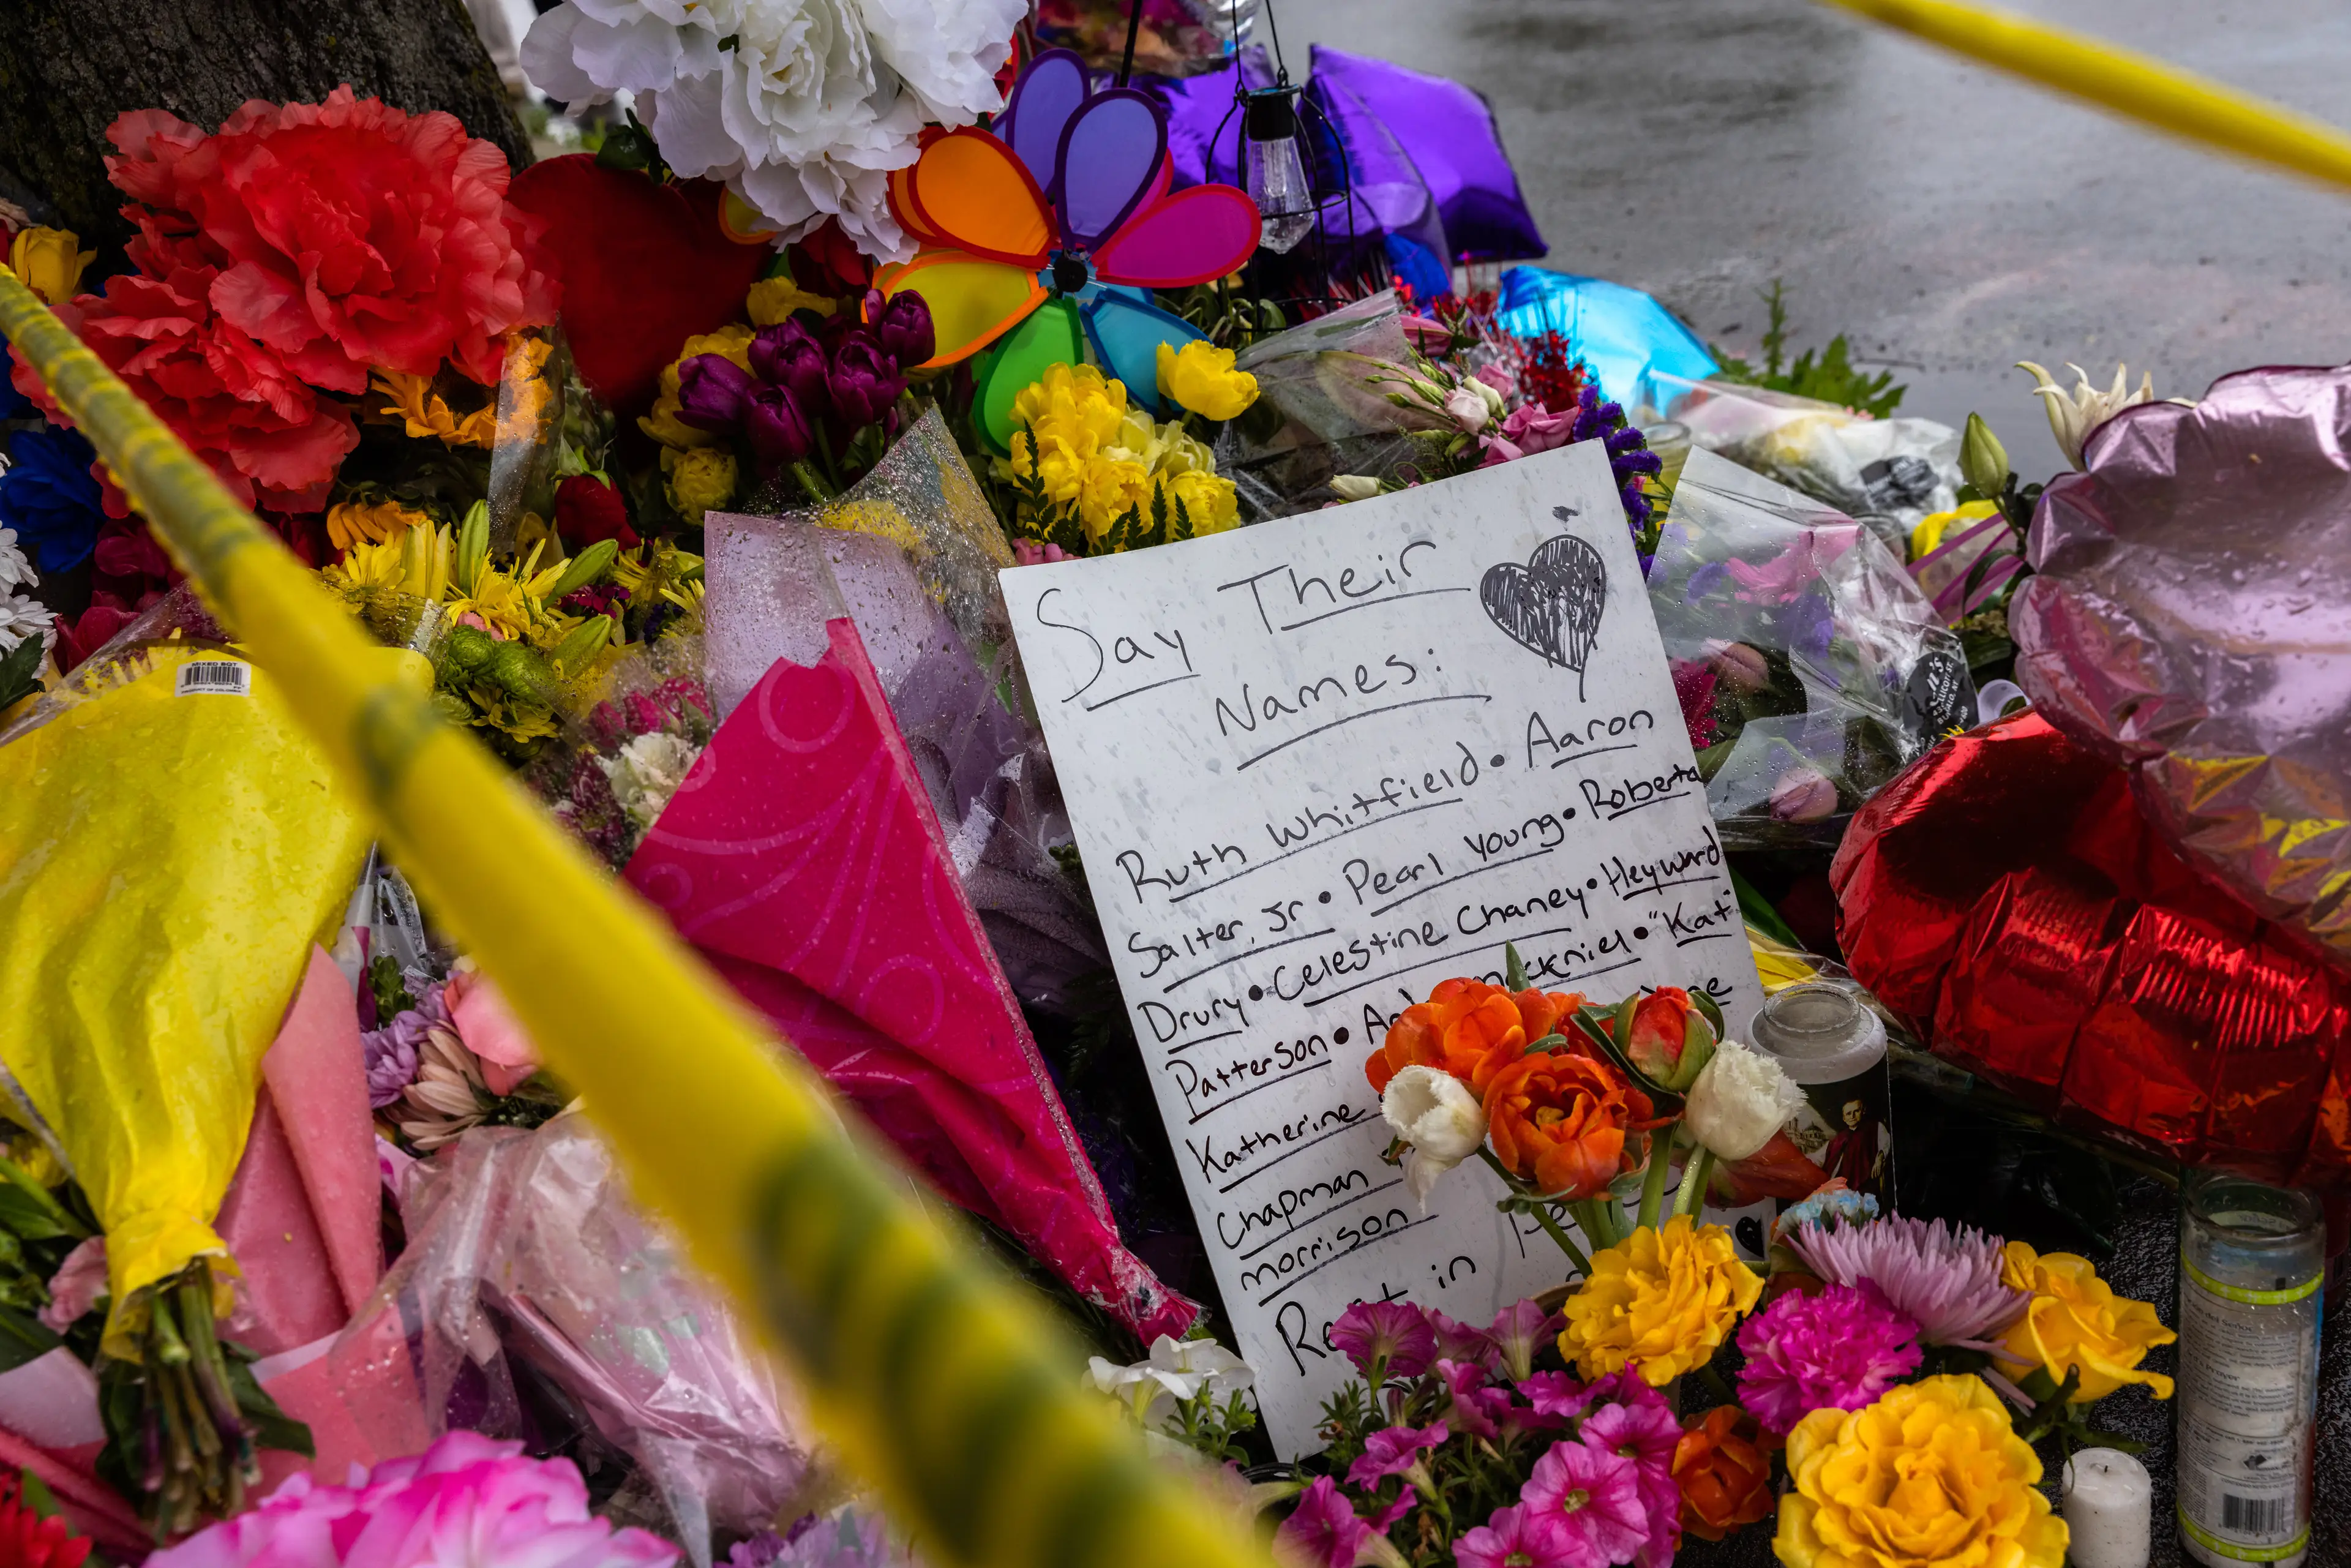 Say Their
Names:
Ruth Whitfield • Aaron
Salter, Jr • Pearl Young • Roberta
Drury • Celestine Chaney • Heyward
Patterson • mackniel • "Kat"
Katherine
Chapman
morrison
Rest in
MIXED BQT
PRODUCT OF COLOMBIA